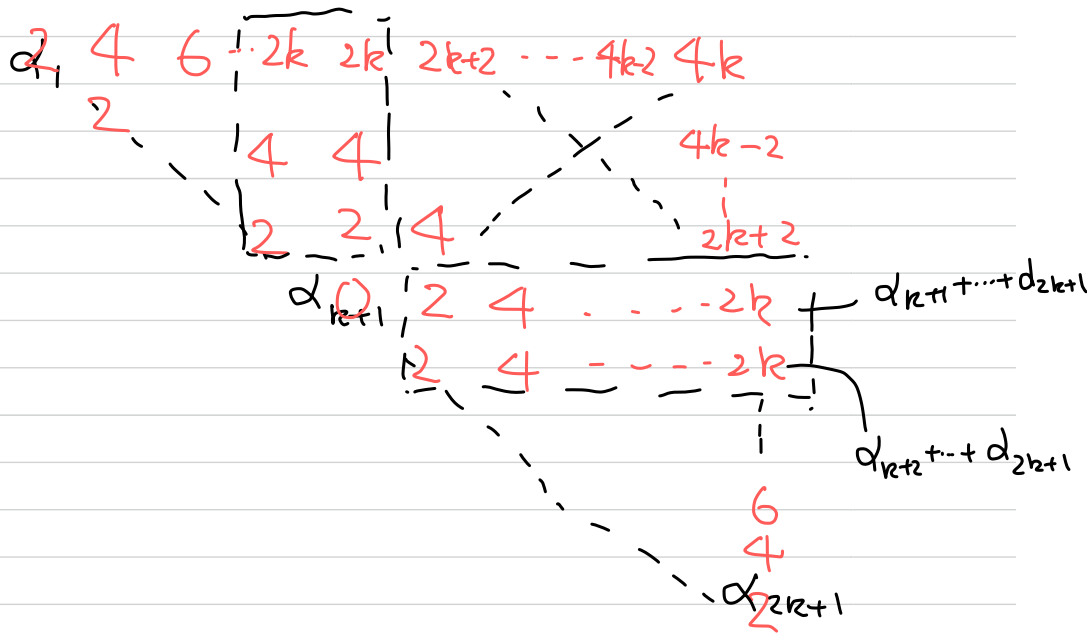 α₁ 2 4 6 ... 2k 2k 2k+2 ... 4k-2 4k
2 4 4 4k-2
2 2 4 2k+2
α_{k+1} 0 2 4 .... 2k α_{k+1}+...+α_{2k+1}
2 4 ---- 2k
α_{k+2}+...+α_{2k+1}
6
4
α_{2k+1} 2